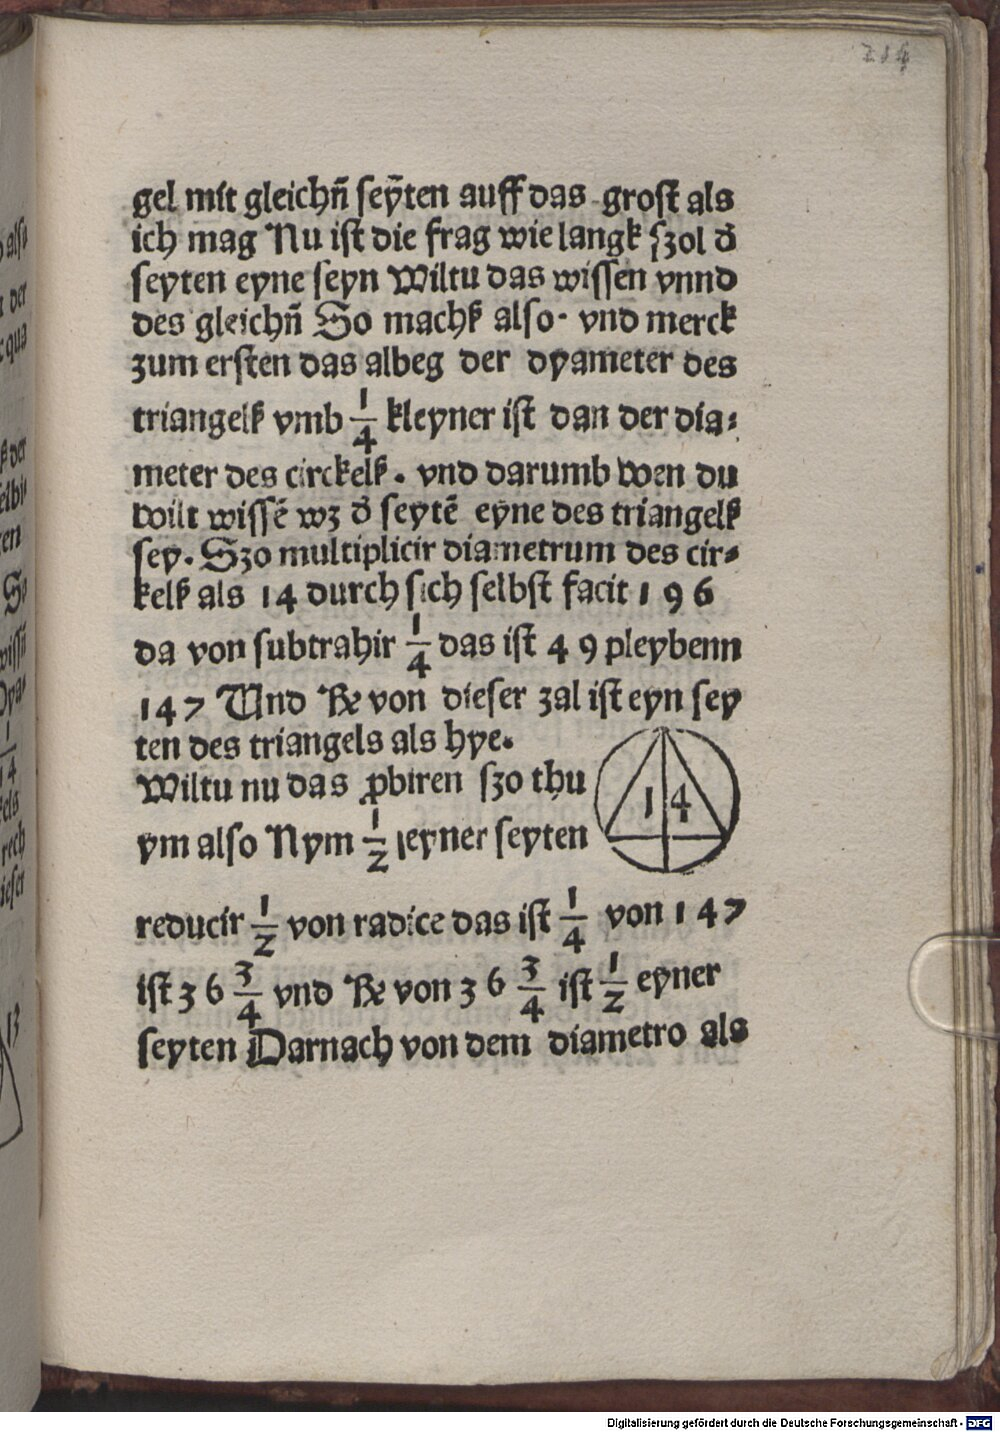 214
gel mit gleichn̄ seȳten auff das grost als
ich mag Nu ist die frag wie langk szol d̄
seyten eyne seyn Wiltu das wissen vnnd
des gleichn̄ So machſz also · vnd merck
zum ersten das albeg der dyameter des
triangelſz vmb 1/4 kleyner ist dan der dia⸗
meter des circkelſz . vnd darumb wen du
wilt wissē wz d̄ seytē eyne des triangelſz
sey . Szo multiplicir diametrum des cir⸗
kelſz als 14 durch sich selbst facit 196
da von subtrahir 1/4 das ist 49 pleybenn
147 Vnd ℞ von dieser zal ist eyn sey
ten des triangels als hye.
Wiltu nu das ꝓbiren szo thu
14
ym also Nym 1/2 eyner seyten
reducir 1/2 von radice das ist 1/4 von 147
ist 36 3/4 vnd ℞ von 36 3/4 ist 1/2 eyner
seyten Darnach von dem diametro als
also
der
qua
der
So
13
Digitalisierung gefördert durch die Deutsche Forschungsgemeinschaft - DFG